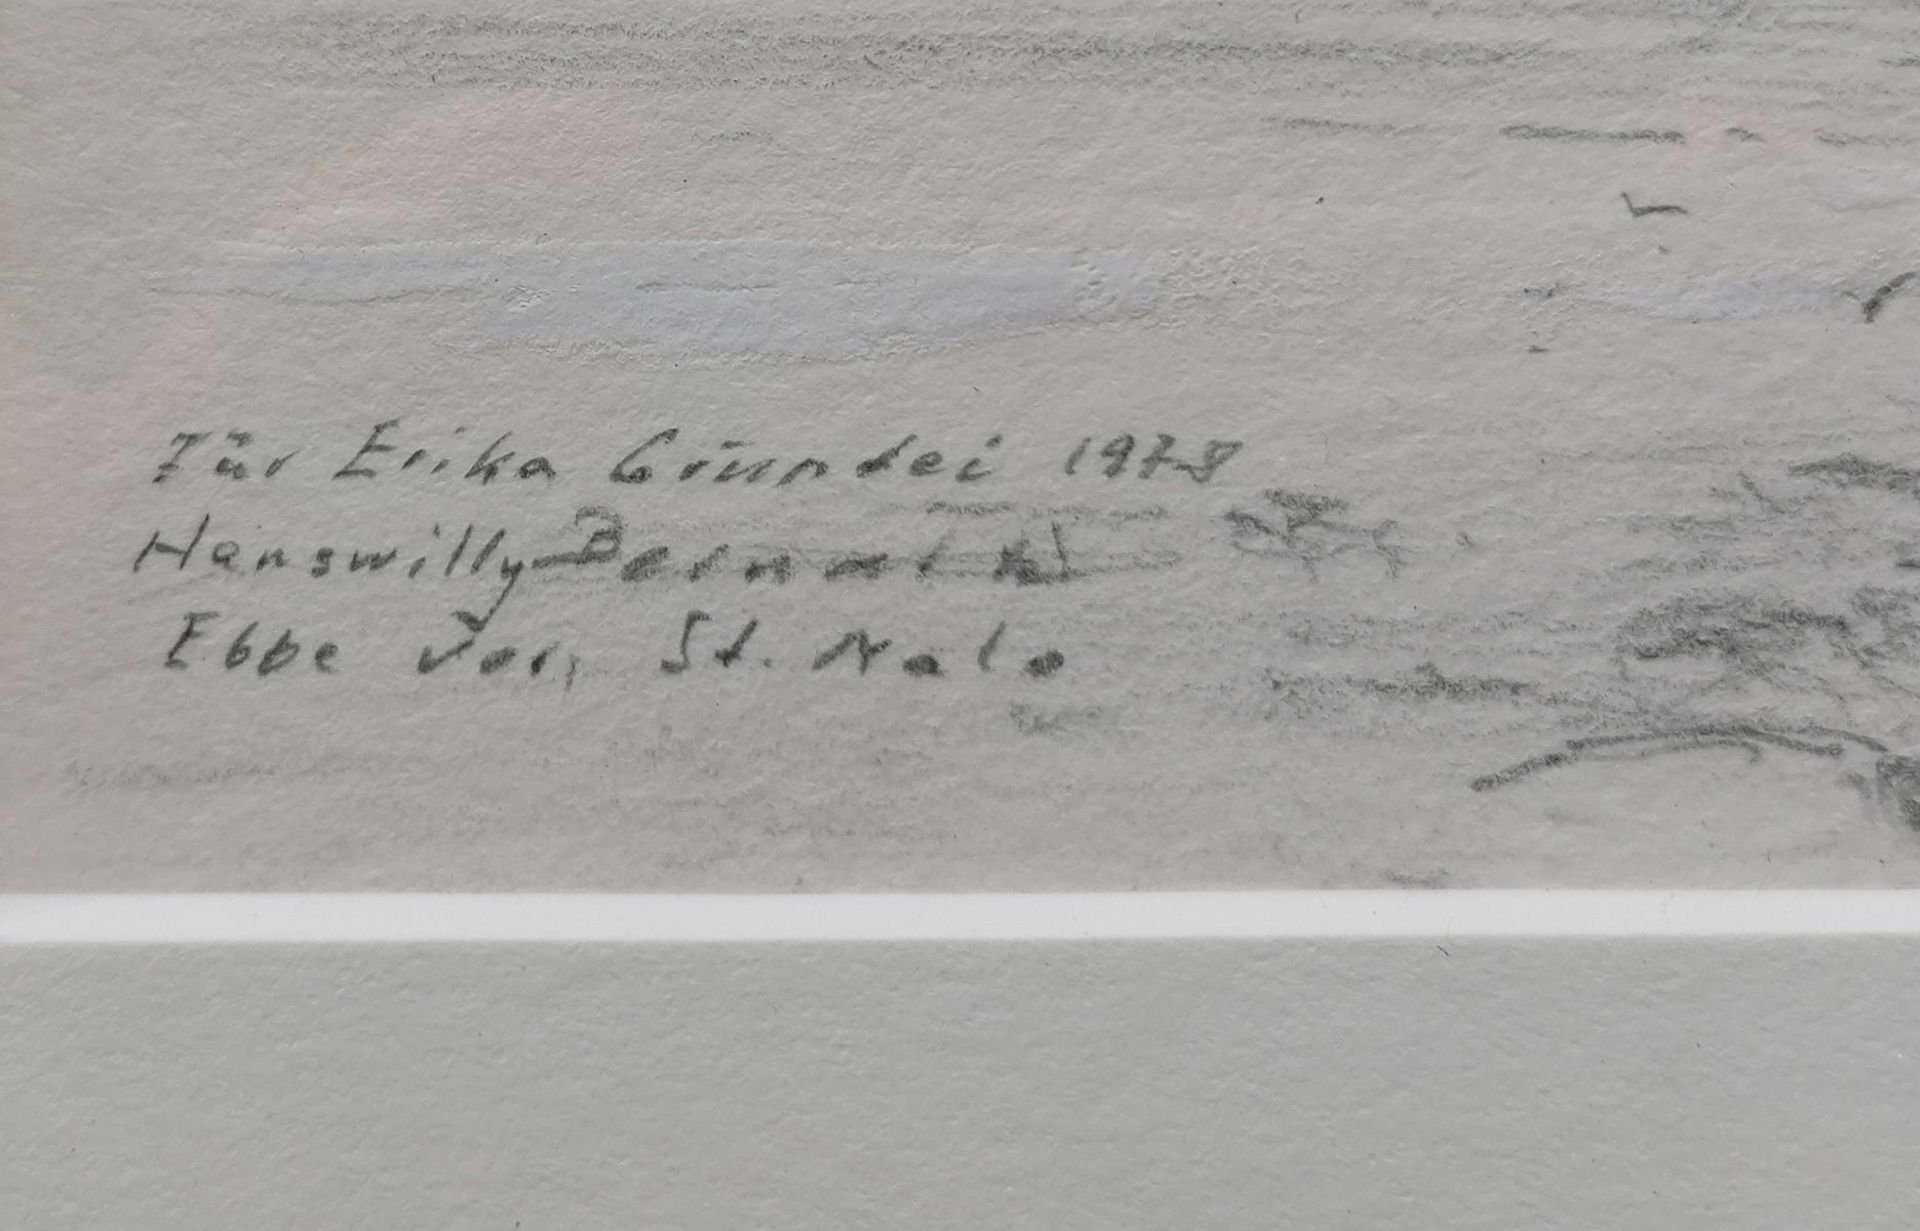 Für Erika Gründei 1978
Hanswilly Bernartz
Ebbe vor St. Malo